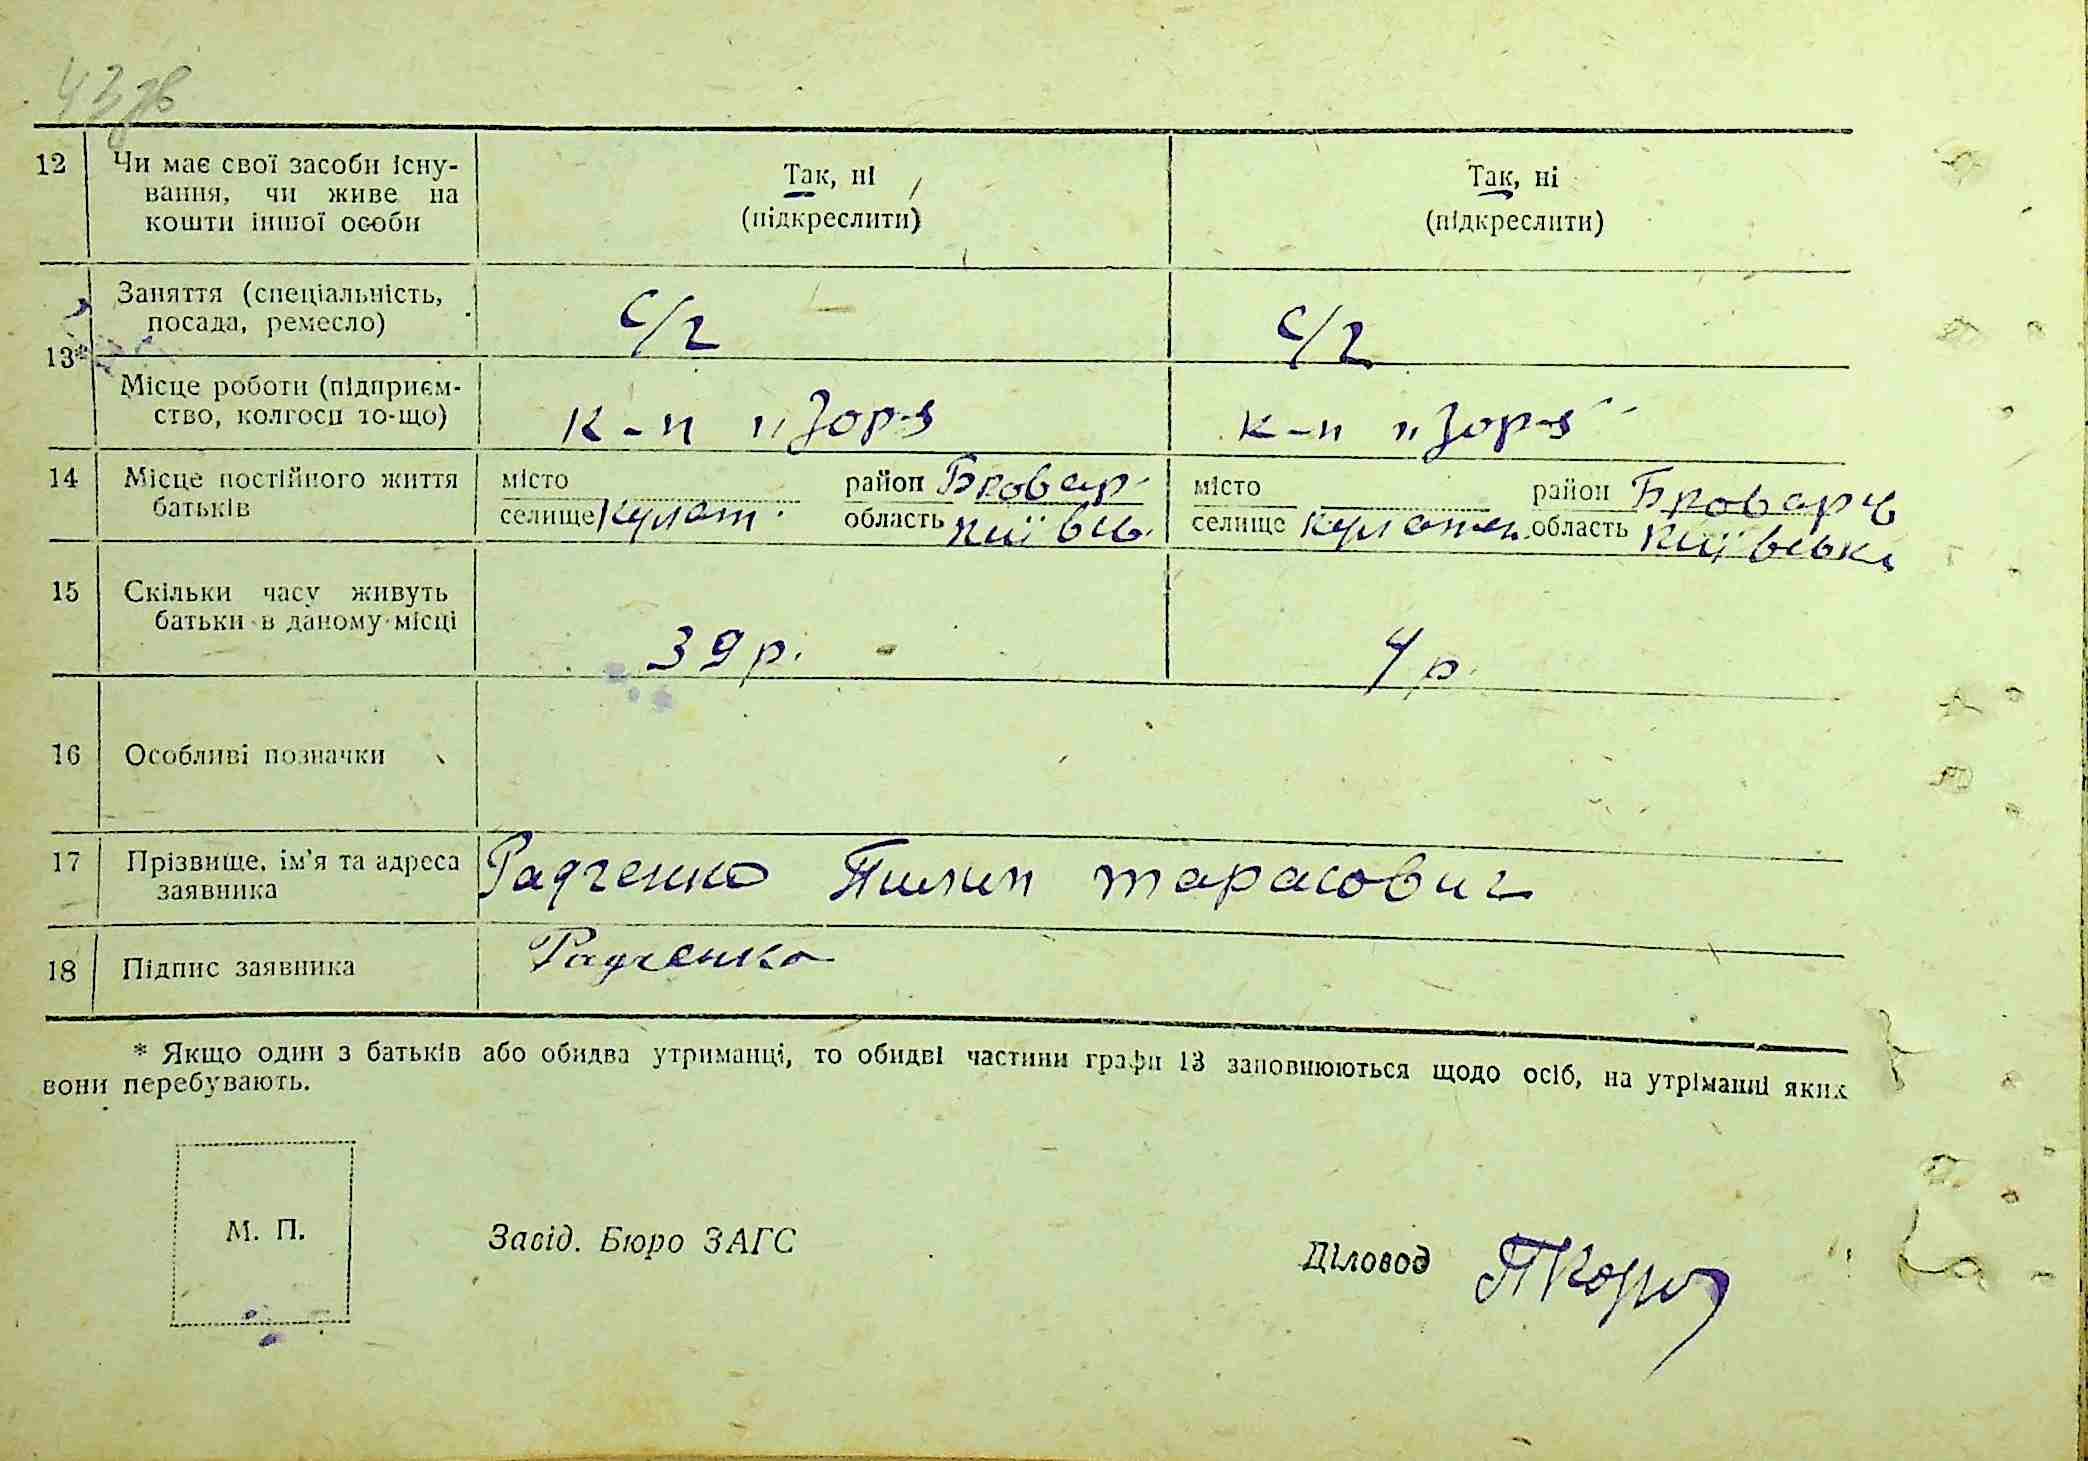 43 зв
12 Чи має свої засоби існу- Так, ні Так, ні
вання, чи живе на (підкреслити) (підкреслити)
кошти іншої особи
Заняття (спеціальність, с/г с/г
посада, ремесло)
13*
Місце роботи (підприєм- к-п "Зоря к-п "Зоря"
ство, колгосп то-що)
14 Місце постійного життя місто район Бровар. місто район Броварсь
батьків селище область Київсь. селище область Київськ
15 Скільки часу живуть
батьки в даному місці 39 р. 4 р.
16 Особливі позначки
17 Прізвище, ім'я та адреса Радченко Пилип тарасович
заявника
18 Підпис заявника Радченко
* Якщо один з батьків або обидва утриманці, то обидві частини графи 13 заповнюються щодо осіб, на утріманні яких
вони перебувають.
М. П. Завід. Бюро ЗАГС Діловод